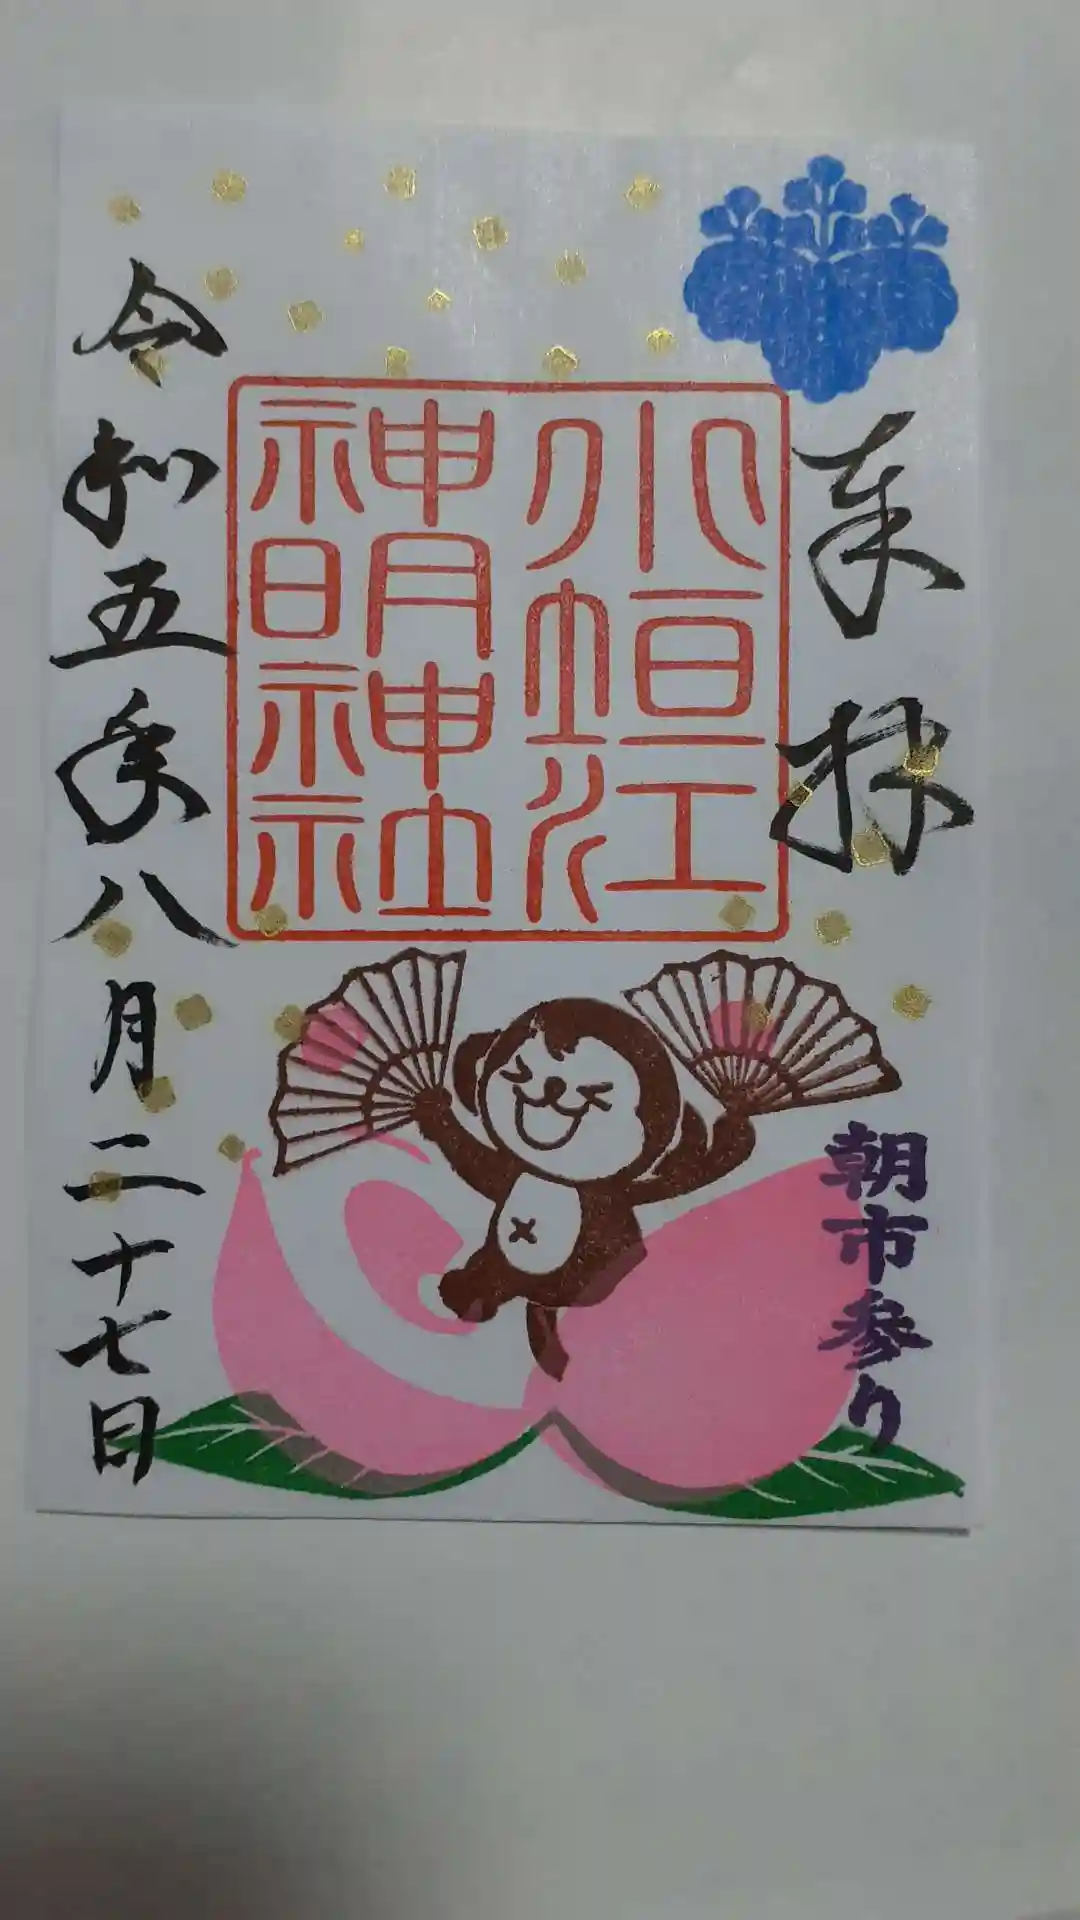 奉拝
朝市参り
小垣江
神明神社
令和五年八月二十七日